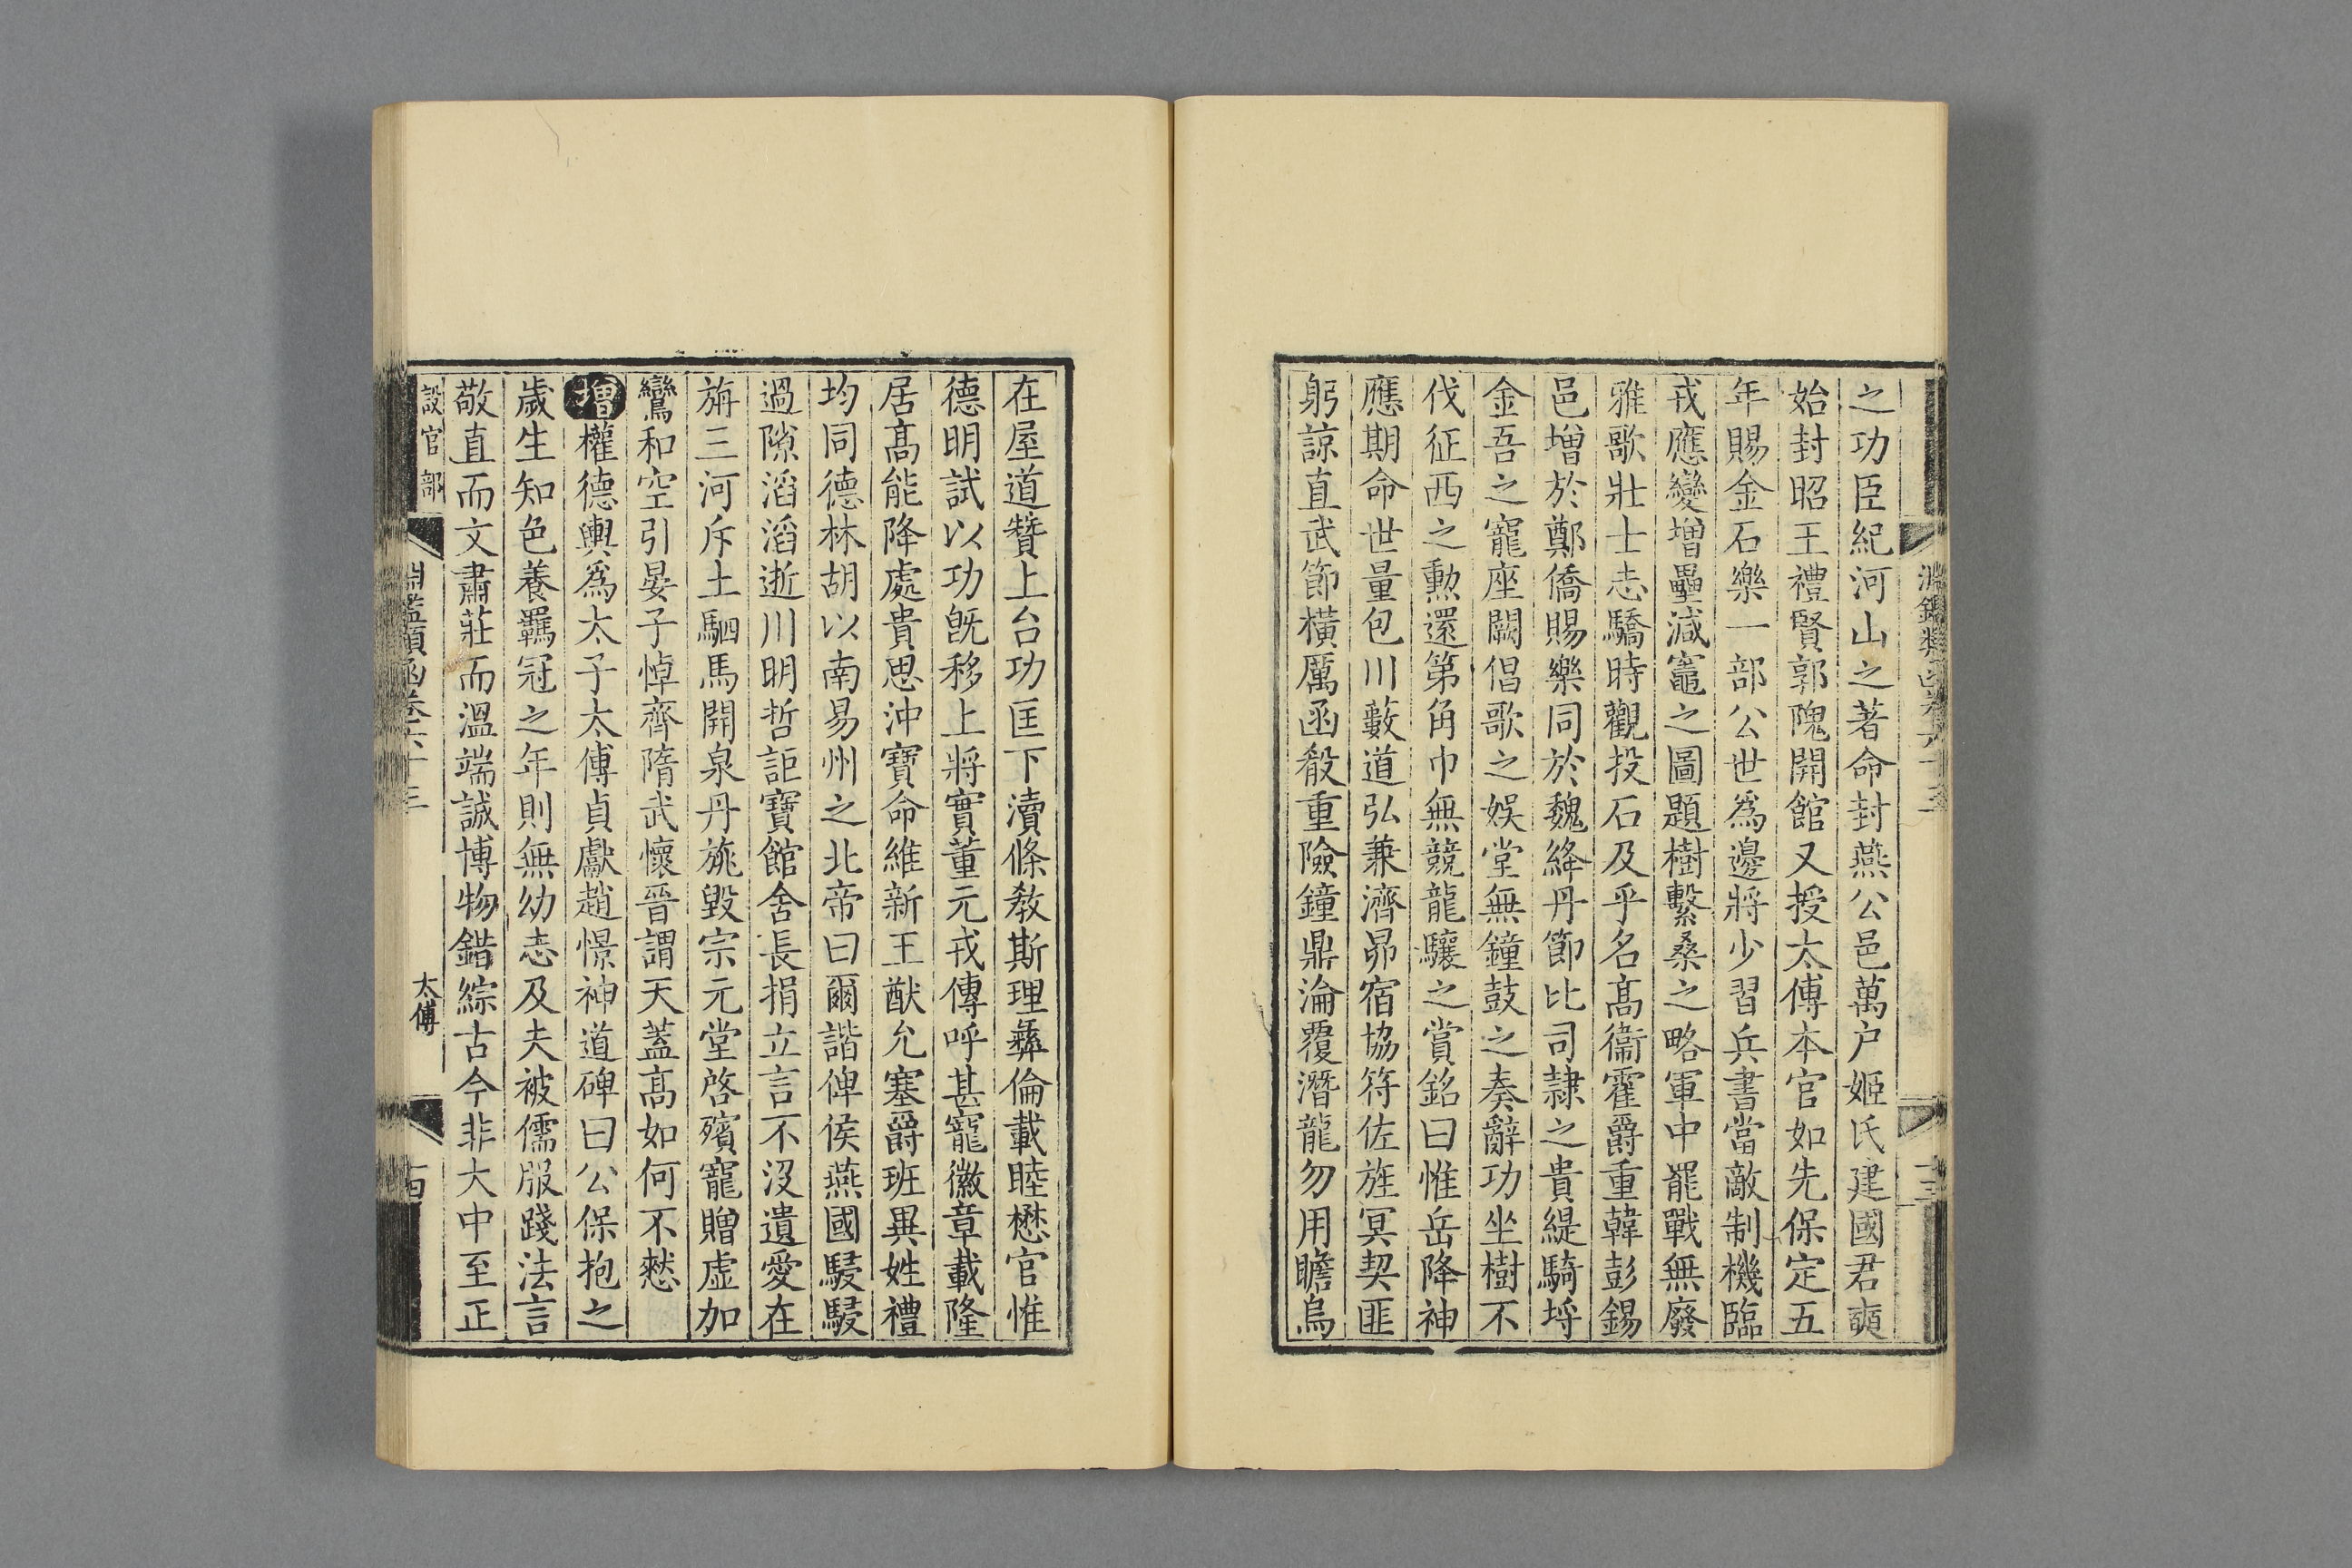 淵鑑類函卷六十三
十三
之功臣紀河山之著命封燕公邑萬户姬氏建國君奭
始封昭王禮賢郭隗開館又授太傅本官如先保定五
年賜金石樂一部公世爲邊將少習兵書當敵制機臨
戎應變增壘減竈之圖題樹繫桑之略軍中罷戰無廢
雅歌壯士志驕時觀投石及乎名髙衞霍爵重韓彭錫
邑增於鄭僑賜樂同於魏絳丹節比司隷之貴緹騎埒
金吾之寵座闕倡歌之娱堂無鐘鼓之奏辭功坐樹不
伐征西之勲還第角巾無競龍驤之賞銘曰惟岳降神
應期命世量包川藪道弘兼濟昴宿協符佐旌冥契匪
躬諒直武節橫厲函殽重險鐘鼎淪覆潛龍勿用瞻烏
在屋道贊上台功匡下瀆條教斯理彝倫載睦懋官惟
德明試以功既移上將實董元戎傳呼甚寵徽章載隆
居髙能降處貴思沖寶命維新王猷允塞爵班異姓禮
均同德林胡以南易州之北帝曰爾諧俾侯燕國駸駸
過隙滔滔逝川明哲詎寶館舍長捐立言不沒遺愛在
旃三河斥土駟馬開泉丹旐毀宗元堂啓殯寵贈虛加
鸞和空引晏子悼齊隋武懷晉謂天蓋髙如何不憗
增權德輿爲太子太傅貞獻趙憬神道碑曰公保抱之
歲生知色養羈冠之年則無幼志及夫被儒服踐法言
敬直而文肅莊而溫端誠博物錯綜古今非大中至正
設官部
淵鑑類函卷六十三
太傅
十四